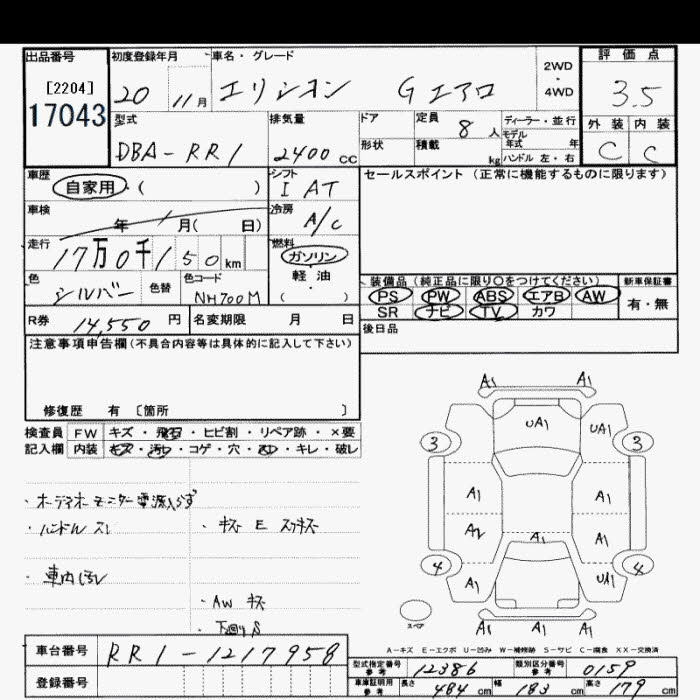 出品番号 初度登録年月 車名・グレード 2WD・4WD 評価点
[2204] 17043 20 11月 エリシオン Gエアロ 3.5
型式 排気量 ドア 定員 8人 ディーラー・並行 外装 内装
モデル年式 年
DBA-RR1 2400cc 形状 積載 kg ハンドル 左・右 C C
車歴 シフト セールスポイント (正常に機能するものに限ります)
自家用・( ) I AT
車検 年 月( 日) 冷房 A/C
走行 17万0千150km 燃料 ガソリン・軽油・( )
装備品(純正品に限り○をつけてください) 新車保証書
色 シルバー 色替 色コード NH700M
PS PW ABS エアB AW 有・無
SR ナビ TV カワ
R券 14,550円 名変期限 月 日 後日品
注意事項申告欄(不具合内容等は具体的に記入して下さい)
修復歴 有 〔箇所 〕
検査員 FW キズ・飛石・ヒビ割・リペア跡・×要
記入欄 内装 キズ・汚れ・コゲ・穴・・キレ・破レ
・オーディオモニター電源入らず
・ハンドルスレ
・キズ E スリキズ
・車内汚れ
・AW キズ
・下廻りS
A1 A1
UA1 UA1
3 3
A1 A1
A2 A1 A1
4 4
A1 UA1
スペア
A1 A1 A1
A-キズ E-エクボ U-凹み W-補修跡 S-サビ C-腐食 XX-交換済
車台番号 RR1-1217958
登録番号
型式指定番号 参考 12386 類別区分番号 参考 0159
車庫証明用 参考 長さ 484cm 幅 183cm 高さ 179cm